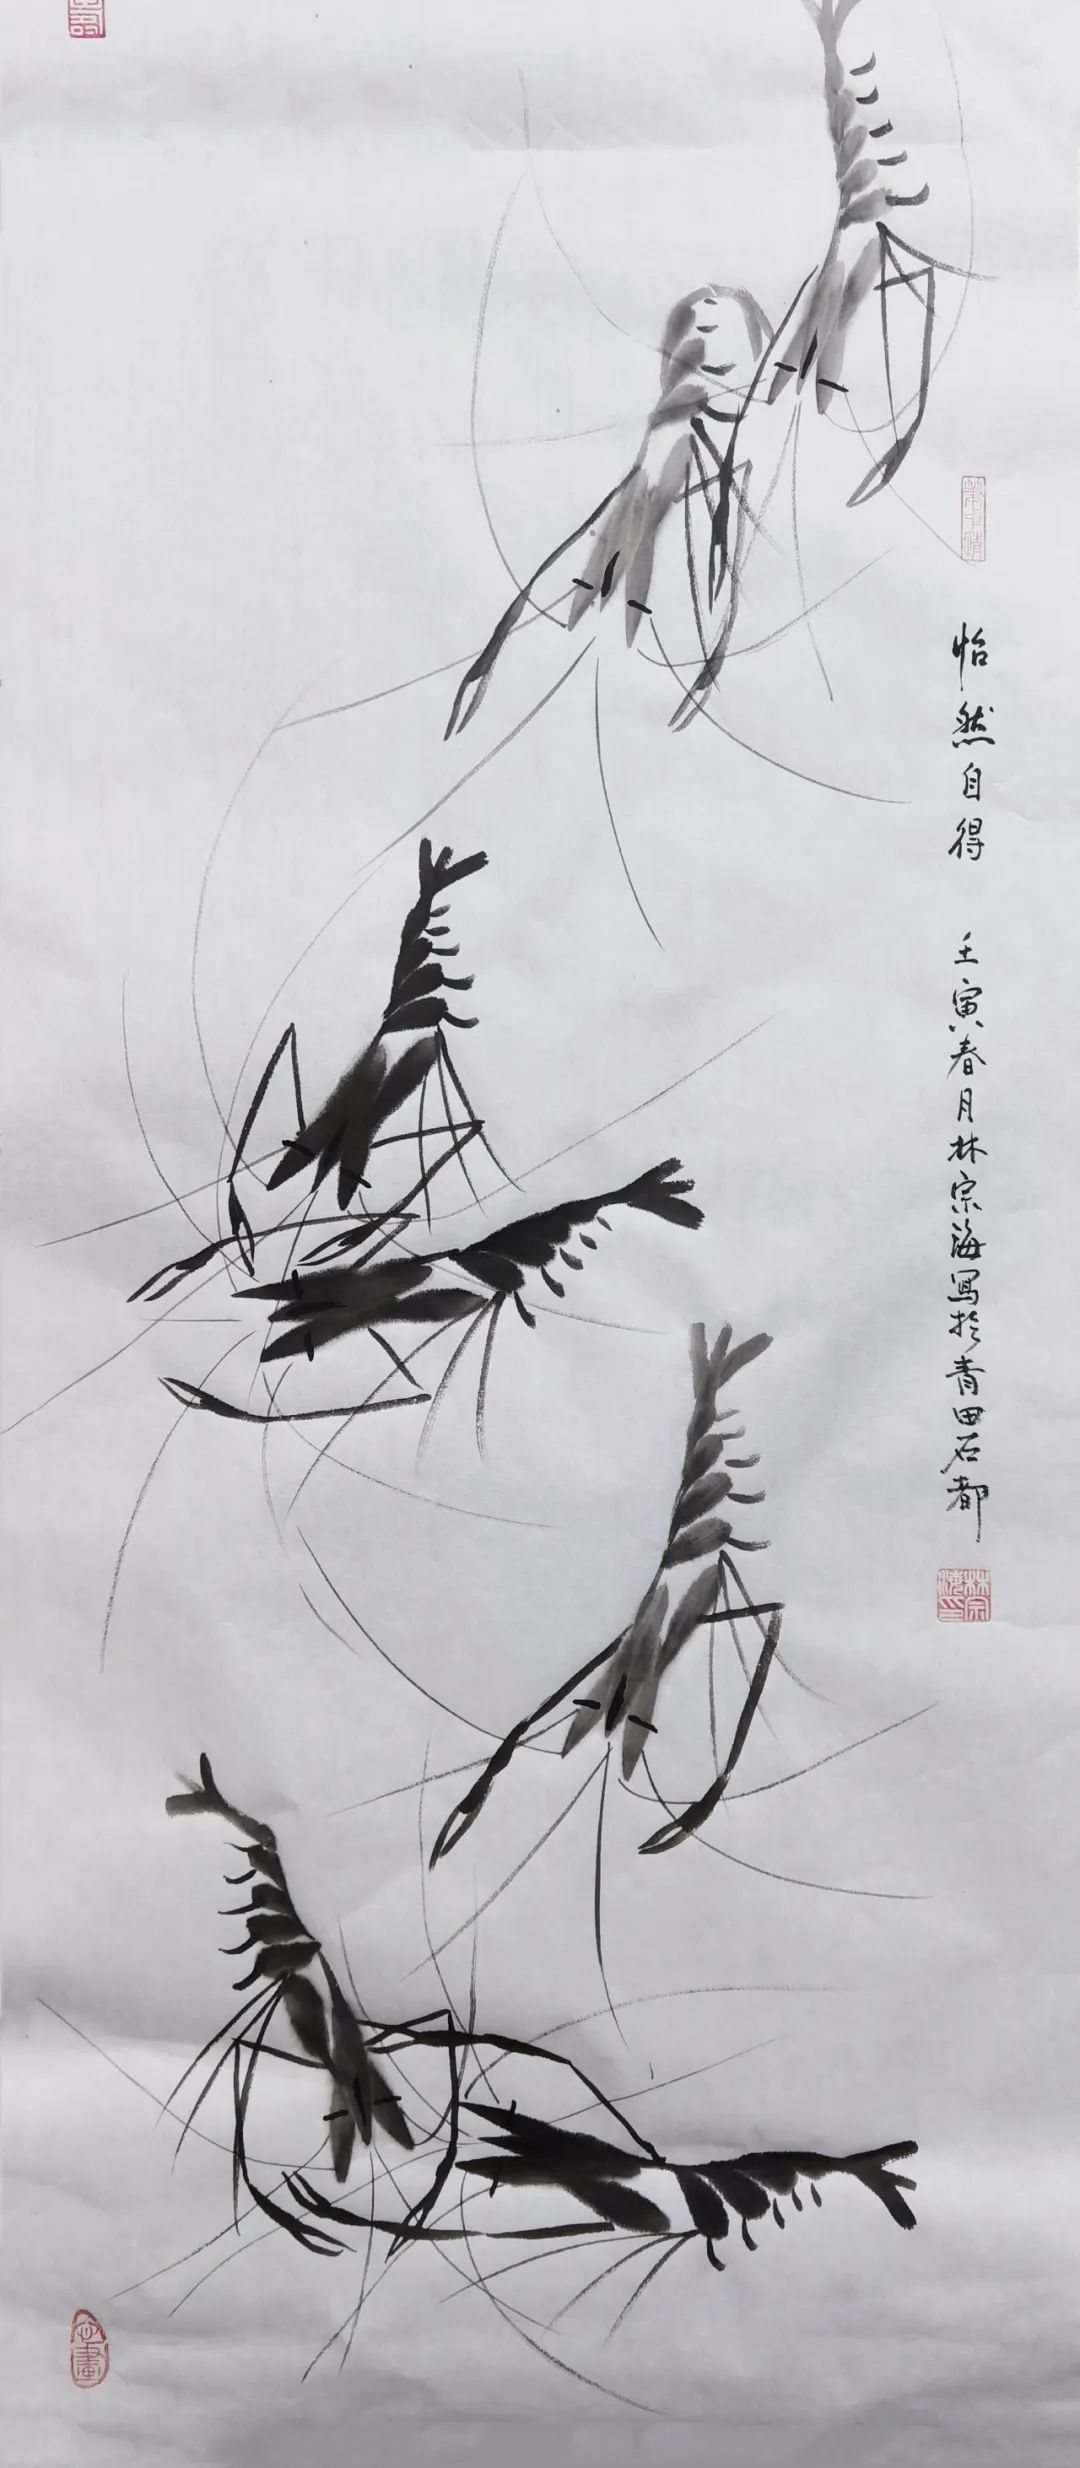 怡然自得
壬寅春月林宗海寫於青田石都
林宗海印